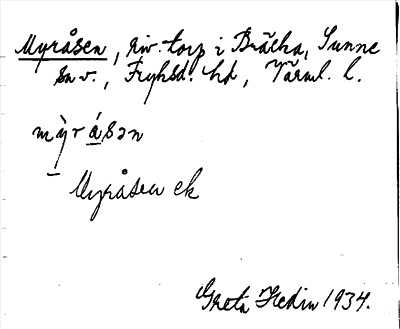 Myråsen, riv. torp i Bräcka, Sunne
sn v., Fryksd. hd, Värml. l.
mỳråsən
Myråsen ek
Greta Hedin 1934.